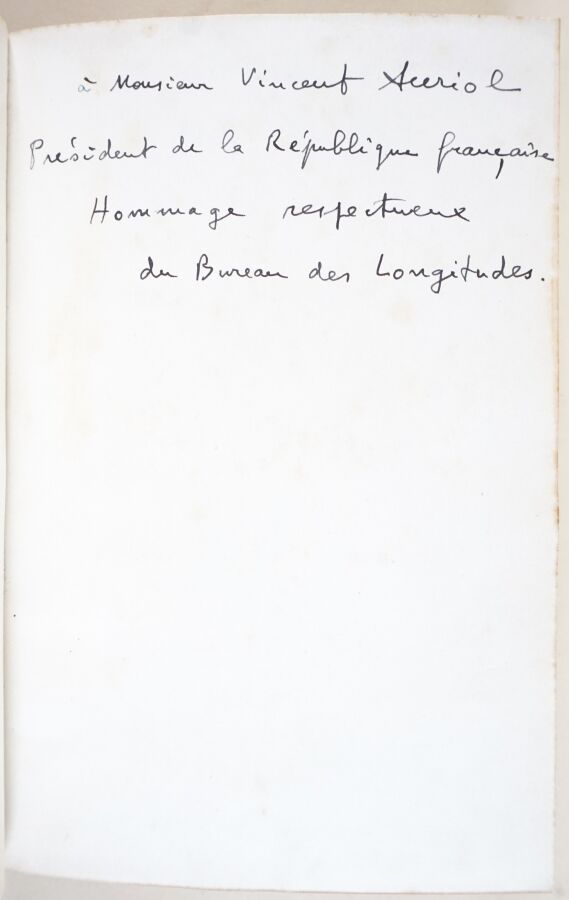 à Monsieur Vincent Auriol
Président de la République française
Hommage respectueux
du Bureau des Longitudes.